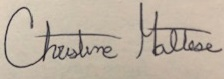 Christine Maltese